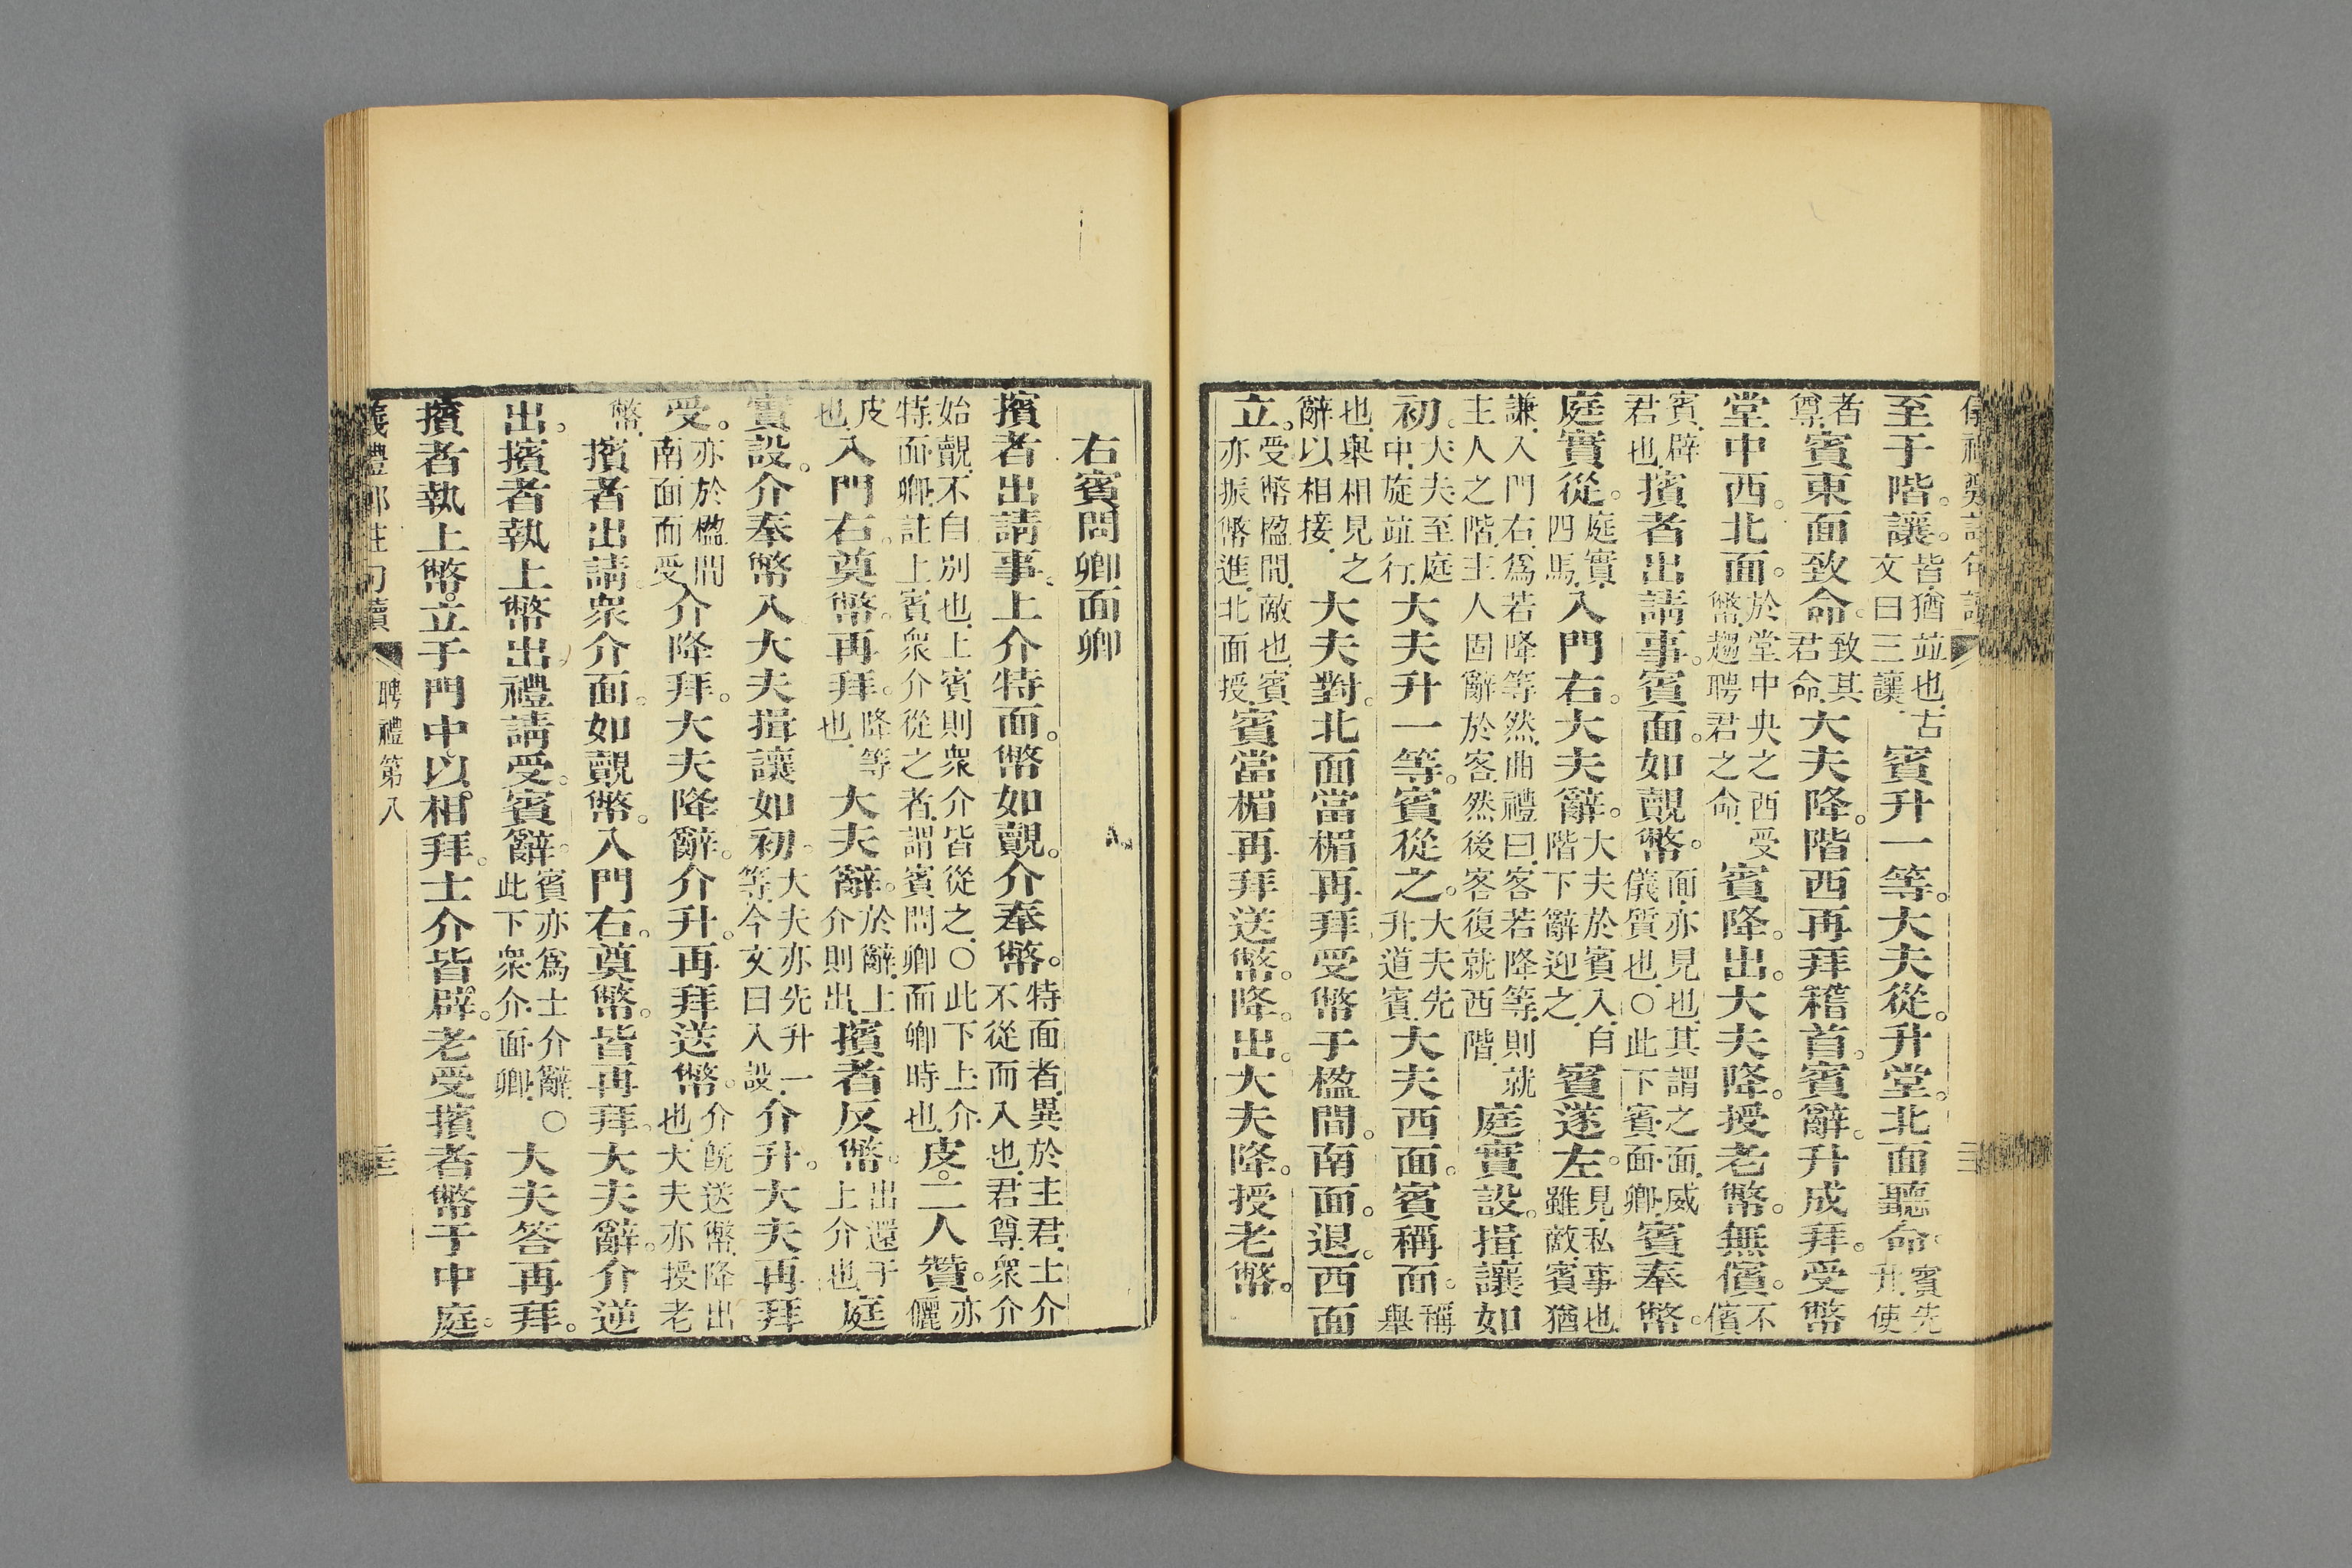 至于階讓。皆猶竝也古文曰三讓賓升一等。大夫從。升堂。北面聽命。賓先升使
者尊賓東面致命。致其君命大夫降。階西再拜稽首。賓辭。升成拜。受幣
堂中西。北面。於堂中央之西受幣趨聘君之命賓降。出。大夫降。授老幣。無儐。不儐
賓辟君也擯者出請事。賓面。如覿幣。面亦見也其謂之面威儀質也○此下賓面卿賓奉幣。
庭實從。庭實四馬入門右。大夫辭。大夫於賓入自階下辭迎之賓遂左。見私事也雖敵賓猶
謙入門右爲若降等然曲禮曰客若降等則就主人之階主人固辭於客然後客復就西階庭實設。揖讓如
初。大夫至庭中旋竝行大夫升一等。賓從之。大夫先升道賓大夫西面。賓稱面。稱舉
也舉相見之辭以相接大夫對。北面當楣再拜受幣于楹間。南面。退。西面
立。受幣楹間敵也賓亦振幣進北面授賓當楣再拜送幣。降。出。大夫降。授老幣。
右賓問卿面卿
擯者出請事。上介特面。幣如覿。介奉幣。特面者異於主君士介不從而入也君尊衆介
始覿不自別也上賓則衆介皆從之○此下上介特面卿註上賓衆介從之者謂賓問卿面卿時也皮。二人贊。亦儷
皮也入門右。奠幣。再拜。降等也大夫辭。於辭上介則出擯者反幣。出還于上介也庭
實設。介奉幣入大夫揖讓如初。大夫亦先升一等今文曰入設介升。大夫再拜
受。亦於楹間南面而受介降拜。大夫降辭。介升。再拜送幣。介既送幣降出也大夫亦授老
幣擯者出請。衆介面。如覿幣。入門右。奠幣。皆再拜。大夫辭。介逆
出。擯者執上幣出禮請受。賓辭。賓亦爲士介辭○此下衆介面卿大夫答再拜。
擯者執上幣。立于門中以。相拜。士介皆。辟。老受擯者幣于中庭。
聘禮第八